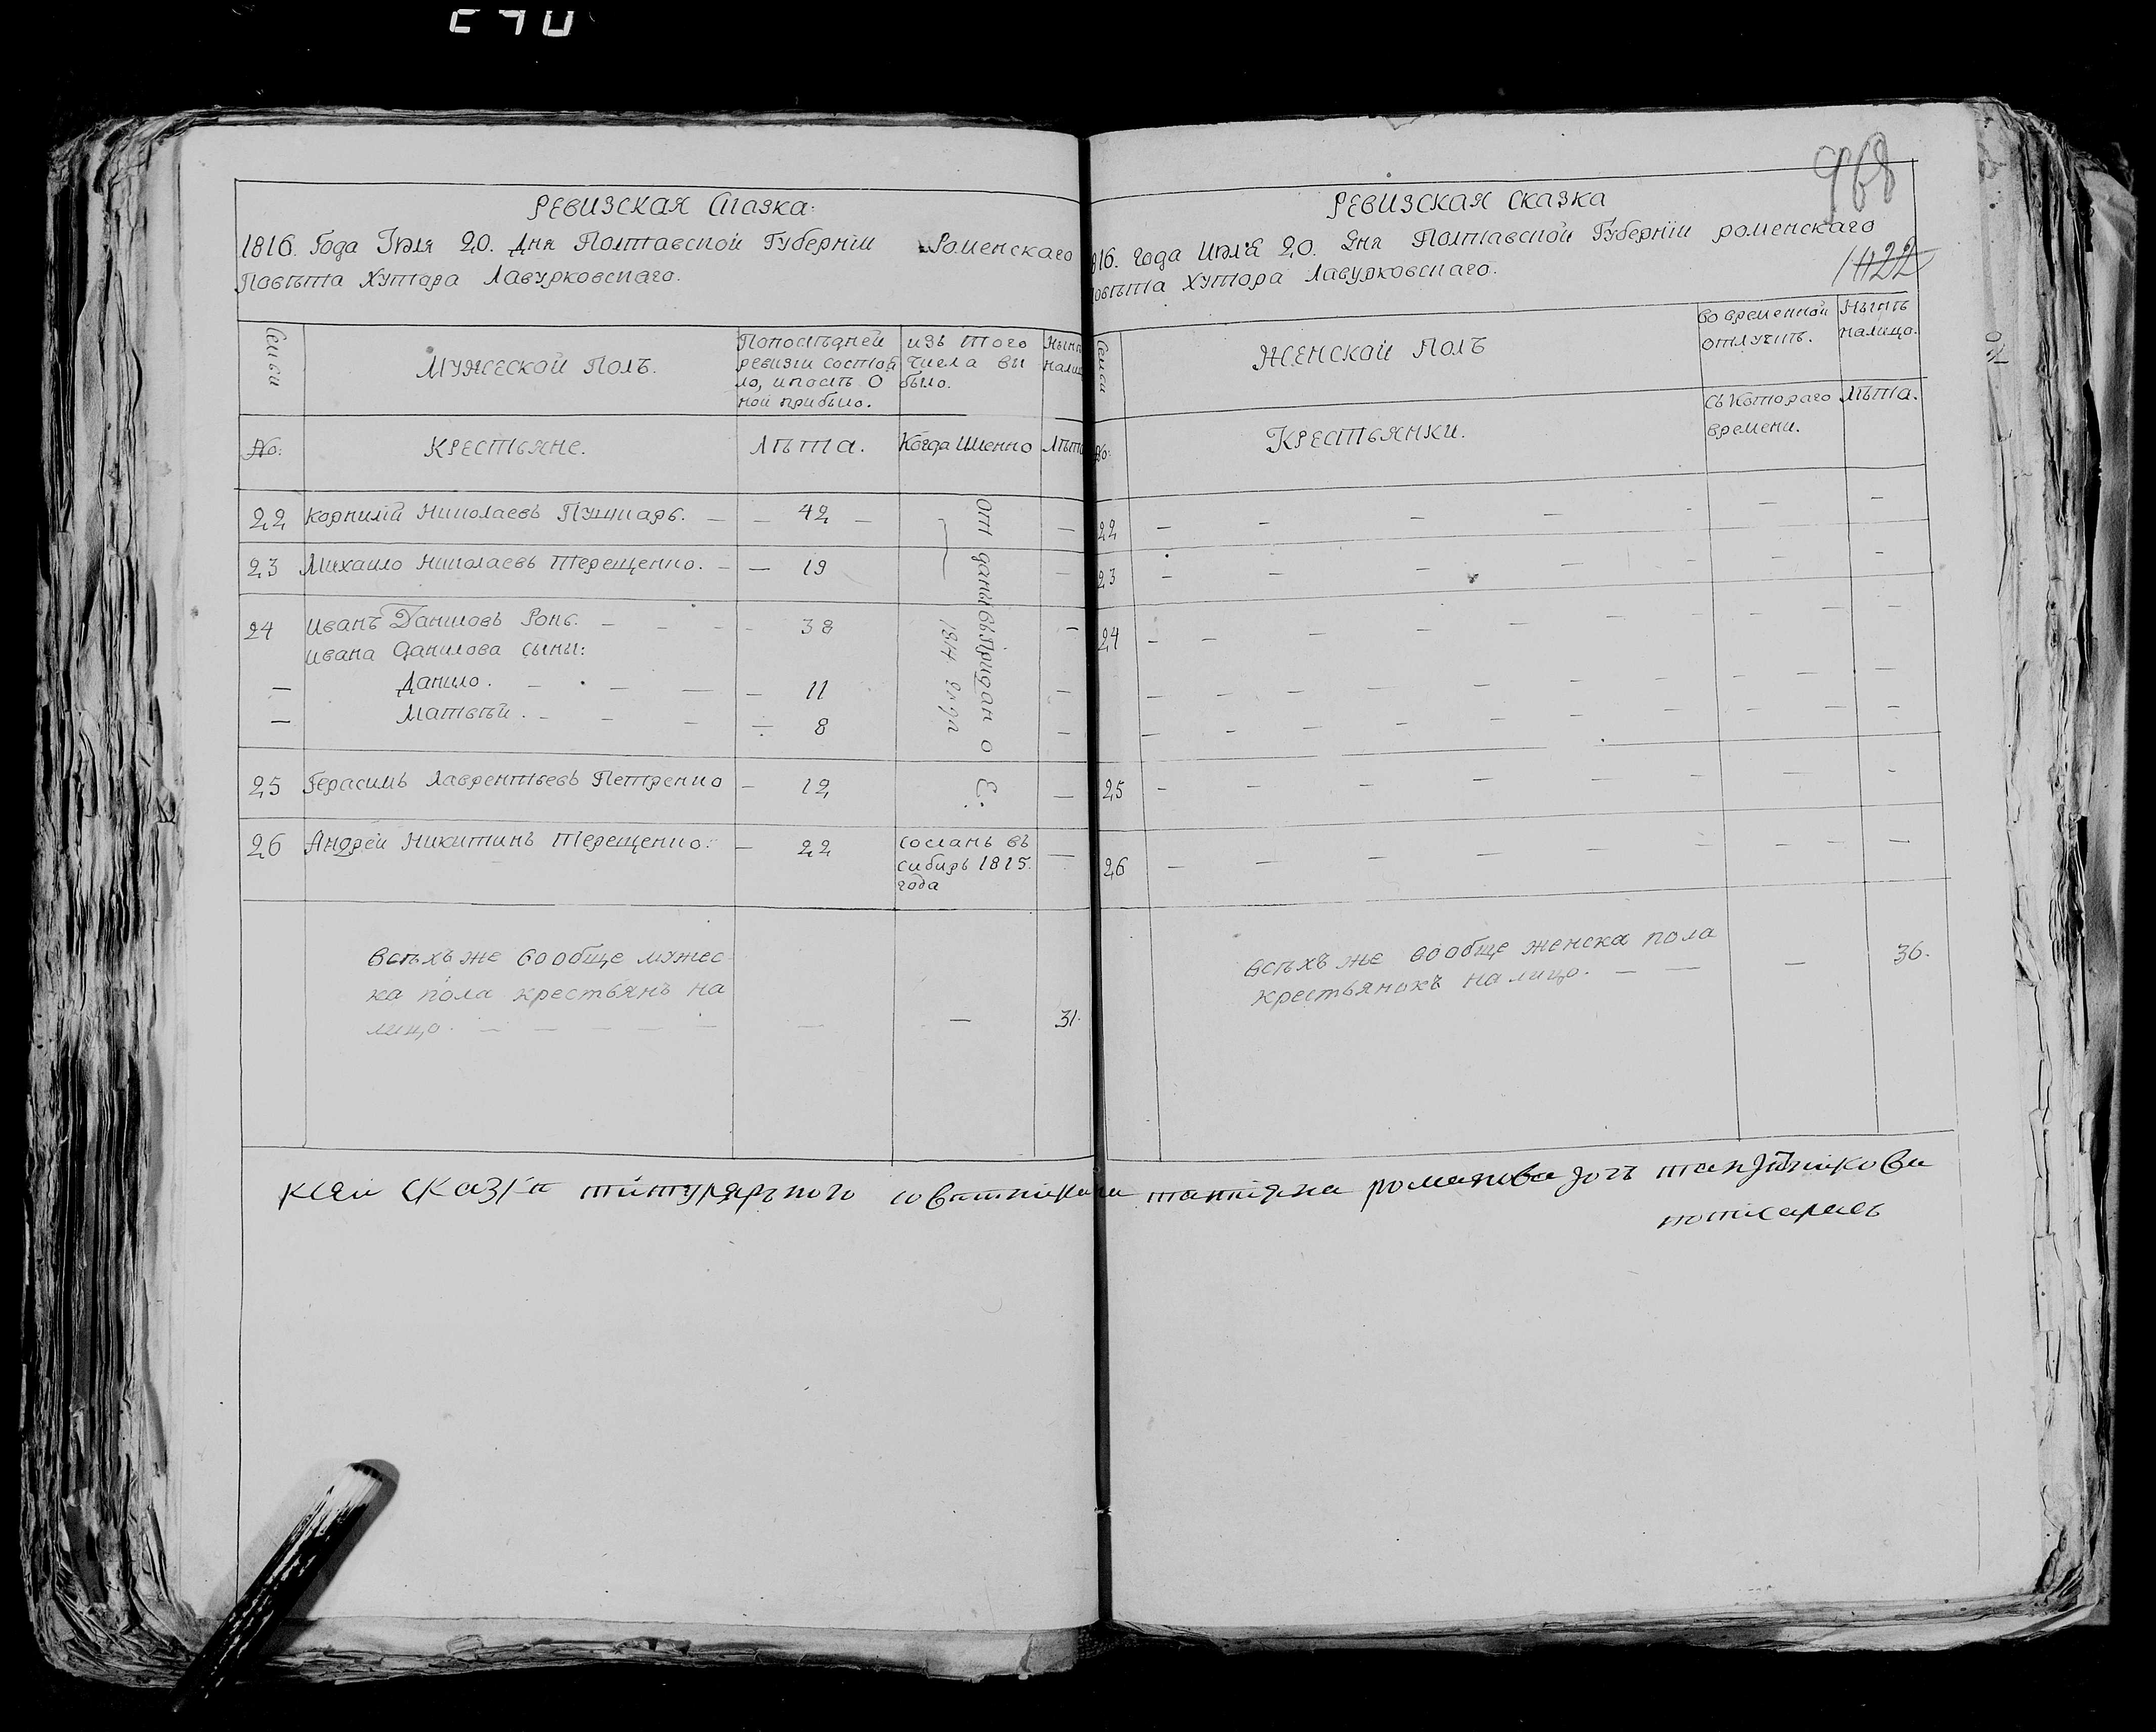 968
РЕВИЗСКАЯ Сказка:
1816. Года Іюля 20. Дня Полтавской Губерніи Роменскаго
Повѣта Хутора Лавурковскаго.
Семьи
МУЖЕСКОЙ ПОЛЪ.
По послѣдней
ревизіи состоя
ло, и послѣ О
ной прибыло.
изъ того
числа вы
было.
Нынѣ
налицо
No:
КРЕСТЬЯНЕ.
Лѣта.
Когда именно
Лѣта
22 Корнилій Николаевъ Пушкаръ. — — 42 — —
23 Михаило Николаевъ Терещенко. — — 19 —
24 Иванъ Даниловъ Ронь. — — — — 38 —
Ивана Данилова сыны:
— Данило. — — — — 11 —
— Матвѣй. — — — — 8 —
Отданы въ Приданое.
1814 года
25 Герасимъ Лаврентьевъ Петренко — 12 —
26 Андрей Никитинъ Терещенко: — 22 сосланъ въ —
сибирь 1815.
года
всѣхъ же вообще мужес
ка пола крестьянъ на
лицо. — — — — — — 31.
РЕВИЗСКАЯ Сказка
1422
816. года Июля 20. Дня Полтавской Губерніи роменскаго
овѣта Хутора Лавурковскаго.
Семьи
ЖЕНСКОЙ ПОЛЪ
во временной
отлучкѣ.
Нынѣ
налицо.
No:
КРЕСТЬЯНКИ.
Съ Котораго
времени.
Лѣта.
22 — — — — — — —
23 — — — — — — —
24 — — — — — — — —
— — — — — — — — —
— — — — — — — — —
25 — — — — — — — —
26 — — — — — — — —
всѣхъ же вообще женска пола
крестьянокъ налицо. — — — 36.
ксей сказкѣ титулярного совѣтника татіяна романова дочъ
потписалась